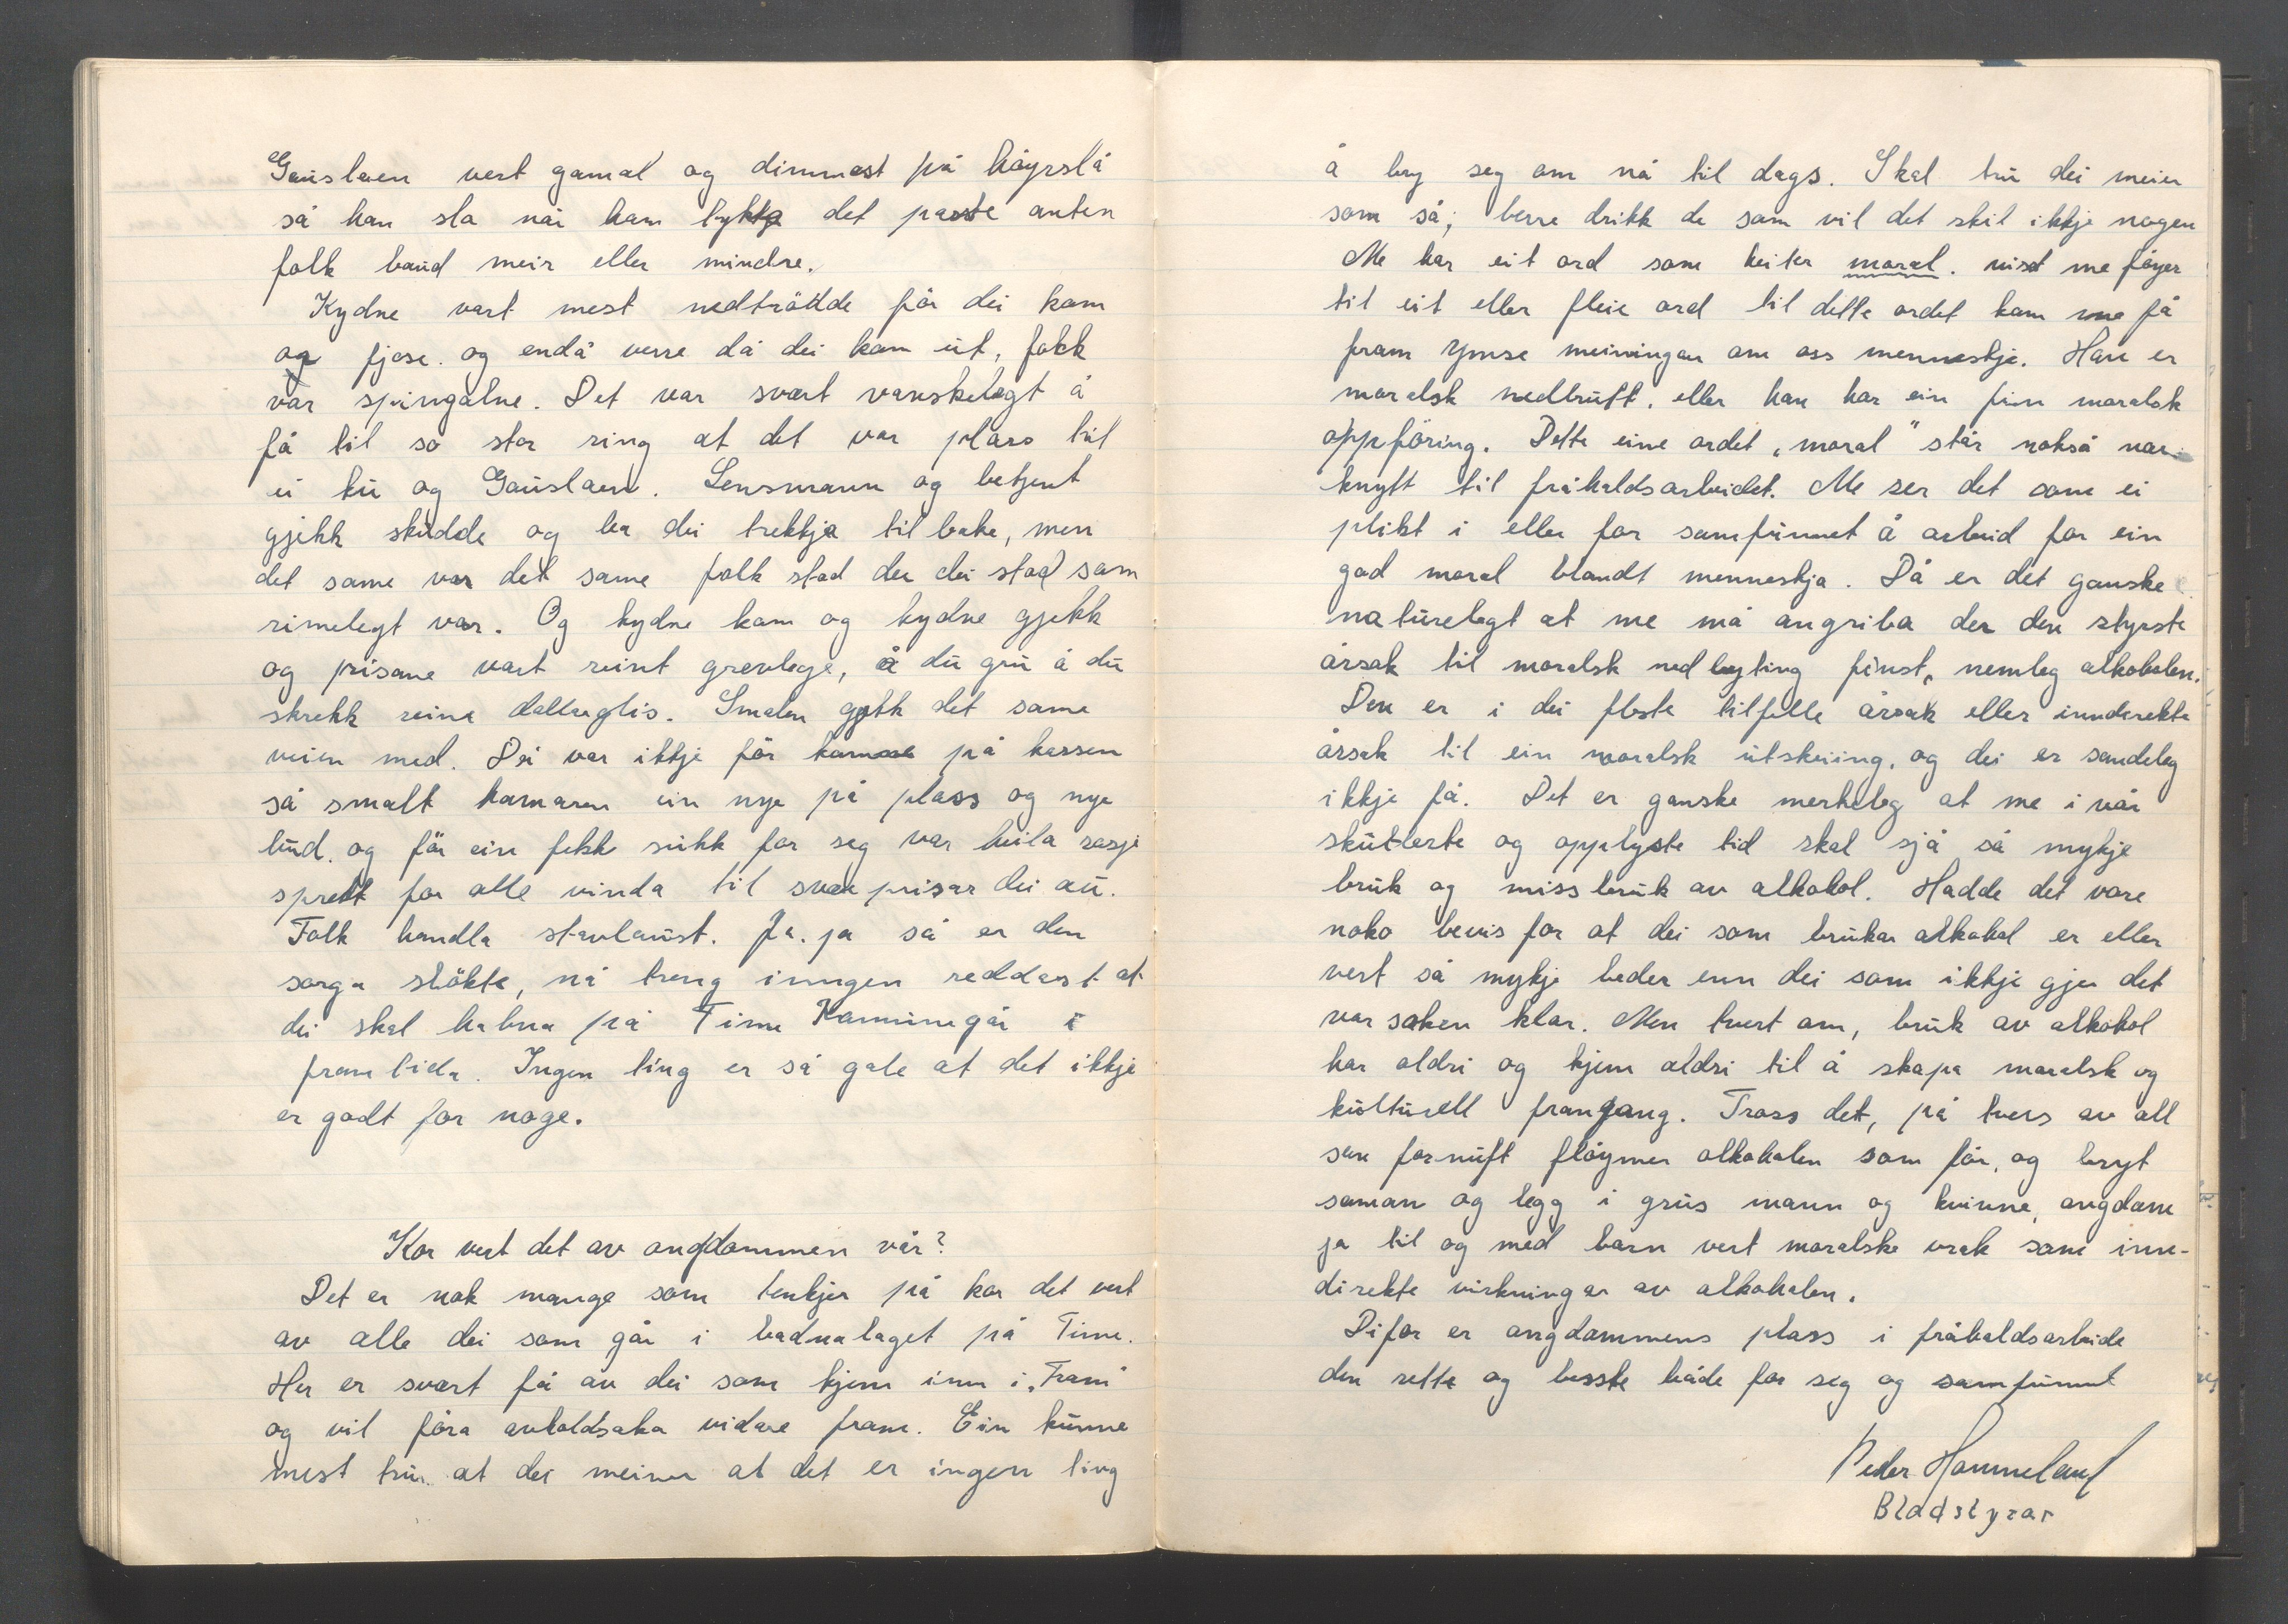 Gauslaen vert gamal og dimmast på høyrslå
så han sla når ham tykte det passte anten
folk baud meir eller mindre.
Kydne vart mest nedtrådde før dei kom
og fjose. og endå verre då dei kom ut, folk
var spingalne. Det var svært vanskelegt å
få til so stor ring at det var plass til
ei ku og Gauslaen. Lensmann og betjent
gjekk skudde og ba dei trekkja tilbake, men
det same var det same folk stod der dei stod som
rimelegt var. Og kydne kom og kydne gjekk
og prisane vart reint grevlege, å du gru å du
skrekk reina dallraglis. Smalen gjekk det same
veien med. Dei var ikkje før komne på kassen
så smalt hamaren ein nye på plass og nye
bud. og før ein fekk sukk for seg var heila sasje
spredt for alle vinda til svære prisar dei au.
Folk handla stavlaust. Ja. ja så er den
sorga sløkte, nå treng inngen reddast at
dei skal habna på Time Kommunegår i
framtida. Ingen ting er så gale at det ikkje
er godt for noge.
Kor vert det av ongdommen vår?
Det er nok mange som tenkjer på kor det vert
av alle dei som går i badnalaget på Time.
Her er svært få av dei som kjem inn i „Fram"
og vil føra avholdsaka vidare fram. Ein kunne
mest tru at dei meiner at det er ingen ting
å bry seg om nå til dags. Skal tru dei meier
som så; berre drikk de som vil det skil ikkje nogen
Me har eit ord som heiter moral. visst me føyer
til eit eller fleie ord til dette ordet kam me få
fram ymse meiningar om oss menneskje. Han er
moralsk nedbrutt. eller han har ein fin moralsk
oppføring. Dette eine ordet „moral" står nokså nær
knytt til fråhaldsarbeidet. Me ser det som ei
plikt i eller for samfunnet å arbeid for ein
god moral blandt menneskja. Då er det ganske
naturelegt at me må angriba der den styrste
årsak til moralsk nedbryting finst, nemleg alkoholen.
Den er i dei fleste tilfelle årsak eller inndirekte
årsak til ein moralsk utskeiing, og dei er sandeleg
ikkje få. Det er ganske merkeleg at me i vår
skulerte og opplyste tid skal sjå så mykje
bruk og missbruk av alkohol. Hadde det vore
noko bevis for at dei som brukar alkohol er eller
vert så mykje beder enn dei som ikkje gjer det
var saken klar. Men tvert om, bruk av alkohol
har aldri og kjem aldri til å skapa moralsk og
kulturell framgang. Tross det, på tvers av all
sun fornuft fløymer alkoholen som før, og bryt
saman og legg i grus mann og kvinne, ongdom
ja til og med barn vert moralske vrak som inn-
direkte virkningar av alkoholen.
Difor er ongdommens plass i fråhaldsarbeide
den rette og besste både for seg og samfunnet
Peder Hommeland
Bladstyrar